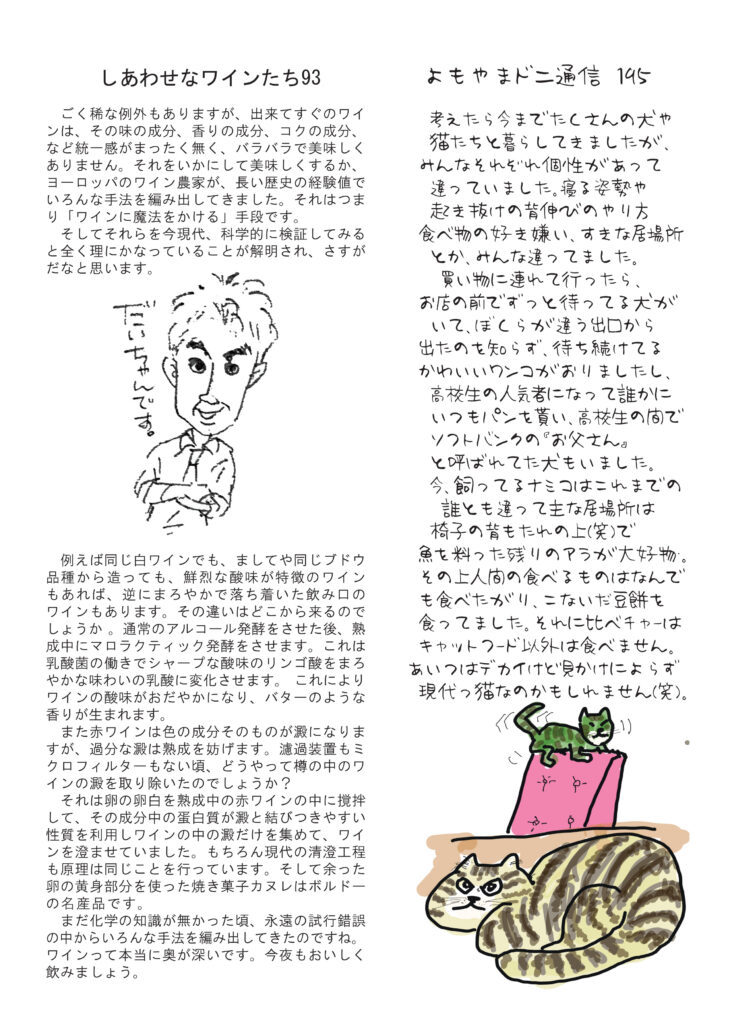 しあわせなワインたち93
ごく稀な例外もありますが、出来てすぐのワイ
ンは、その味の成分、香りの成分、コクの成分、
など統一感がまったく無く、バラバラで美味しく
ありません。それをいかにして美味しくするか、
ヨーロッパのワイン農家が、長い歴史の経験値で
いろんな手法を編み出してきました。それはつま
り「ワインに魔法をかける」手段です。
そしてそれらを今現代、科学的に検証してみる
と全く理にかなっていることが解明され、さすが
だなと思います。
だいちゃんです。
例えば同じ白ワインでも、ましてや同じブドウ
品種から造っても、鮮烈な酸味が特徴のワイン
もあれば、逆にまろやかで落ち着いた飲み口の
ワインもあります。その違いはどこから来るので
しょうか 。通常のアルコール発酵をさせた後、熟
成中にマロラクティック発酵をさせます。これは
乳酸菌の働きでシャープな酸味のリンゴ酸をまろ
やかな味わいの乳酸に変化させます。 これにより
ワインの酸味がおだやかになり、バターのような
香りが生まれます。
また赤ワインは色の成分そのものが澱になりま
すが、過分な澱は熟成を妨げます。濾過装置もミ
クロフィルターもない頃、どうやって樽の中のワ
インの澱を取り除いたのでしょうか？
それは卵の卵白を熟成中の赤ワインの中に撹拌
して、その成分中の蛋白質が澱と結びつきやすい
性質を利用しワインの中の澱だけを集めて、ワイ
ンを澄ませていました。もちろん現代の清澄工程
も原理は同じことを行っています。そして余った
卵の黄身部分を使った焼き菓子カヌレはボルドー
の名産品です。
まだ化学の知識が無かった頃、永遠の試行錯誤
の中からいろんな手法を編み出してきたのですね。
ワインって本当に奥が深いです。今夜もおいしく
飲みましょう。
よもやまドニ通信 195
考えたら今までたくさんの犬や
猫たちと暮らしてきましたが、
みんなそれぞれ個性があって
違っていました。寝る姿勢や
起き抜けの背伸びのやり方
食べ物の好き嫌い、すきな居場所
とか、みんな違ってました。
買い物に連れて行ったら、
お店の前でずっと待ってる犬が
いて、ぼくらが違う出口から
出たのを知らず、待ち続けてる
かわいいワンコがおりましたし、
高校生の人気者になって誰かに
いつもパンを貰い、高校生の間で
ソフトバンクの『お父さん』
と呼ばれてた犬もいました。
今、飼ってるナミコはこれまでの
誰とも違って主な居場所は
椅子の背もたれの上(笑)で
魚を料った残りのアラが大好物。
その上人間の食べるものはなんで
も食べたがり、こないだ豆餅を
食ってました。それに比べチャーは
キャットフード以外は食べません。
あいつはデカイけど見かけによらず
現代っ猫なのかもしれません(笑)。